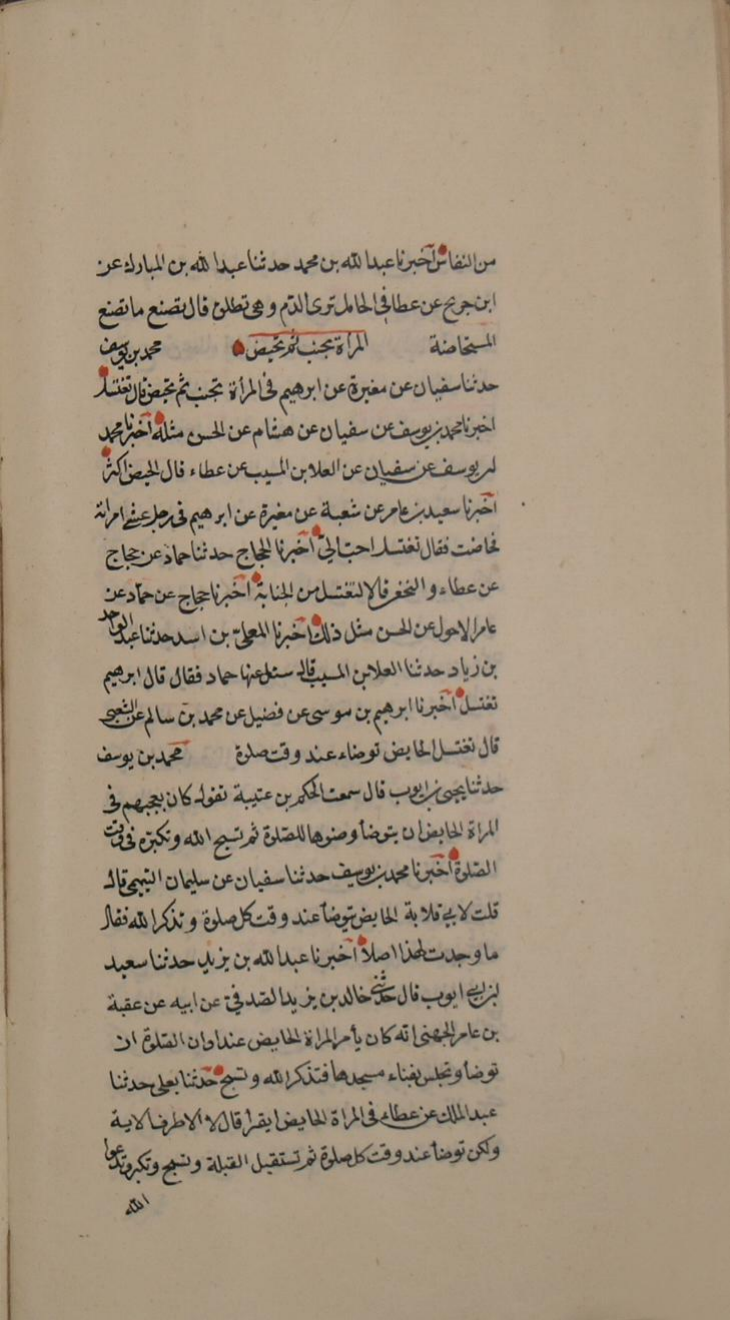 من النفاس أخبرنا عبد الله بن محمد حدثنا عبد الله بن المبارك عن
ابن جريج عن عطا في الحامل ترى الدم وهي تطلق قال تصنع ما تصنع
المستحاضة المرأة تجنب ثم تحيض محمد بن يوسف
حدثنا سفيان عن مغيرة عن ابرهيم في المرأة تجنب ثم تحيض قال تغتسل
اخبرنا محمد بن يوسف عن سفيان عن هشام عن الحسن مثله أخبرنا محمد
بن يوسف عن سفيان عن العلا بن المسيب عن عطاء قال الحيض اكثر
أخبرنا سعيد بن عامر عن شعبة عن مغيرة عن ابرهيم في رجل غشي امراته
فحاضت فقال تغتسل احب الي أخبرنا الحجاج حدثنا حماد عن حجاج
عن عطاء و النخعي قالا لتغتسل من الجنابة أخبرنا حجاج عن حماد عن
عامر الاحول عن الحسن مثل ذلك أخبرنا المعلى بن اسد حدثنا عبد الواحد
بن زياد حدثنا العلا بن المسيب قال سئل عنها حماد فقال قال ابرهيم
تغتسل أخبرنا ابرهيم بن موسى عن فضيل عن محمد بن سالم عن الشعبي
قال تغتسل الحايض توضاء عند وقت صلوة محمد بن يوسف
حدثنا يحيى بن ايوب قال سمعت الحكم بن عتيبة تقول كان يعجبهم في
المراة الحايض ان يتوضأ وضوها للصلوة ثم تسبح الله وتكبره في وقت
الصلوة أخبرنا محمد بن يوسف حدثنا سفيان عن سليمان التيمي قال
قلت لابي قلابة الحايض تتوضأ عند وقت كل صلوة و تذكر الله فقال
ما وجدت لهذا اصلا أخبرنا عبد الله بن يزيد حدثنا سعيد
بن ابي ايوب قال حدثني خالد بن يزيد الصدفي عن ابيه عن عقبة
بن عامر الجهني انه كان يأمر المراة الحايض عند اوان الصلوة ان
توضأ وتجلس بفناء مسجدها فتذكر الله وتسبح حدثنا يعلى حدثنا
عبد الملك عن عطاء في المراة الحايض ايقرا قال لا الا طرف الاية
ولكن توضأ عند وقت كل صلوة ثم تستقبل القبلة وتسبح وتكبر وتدعوا
الله